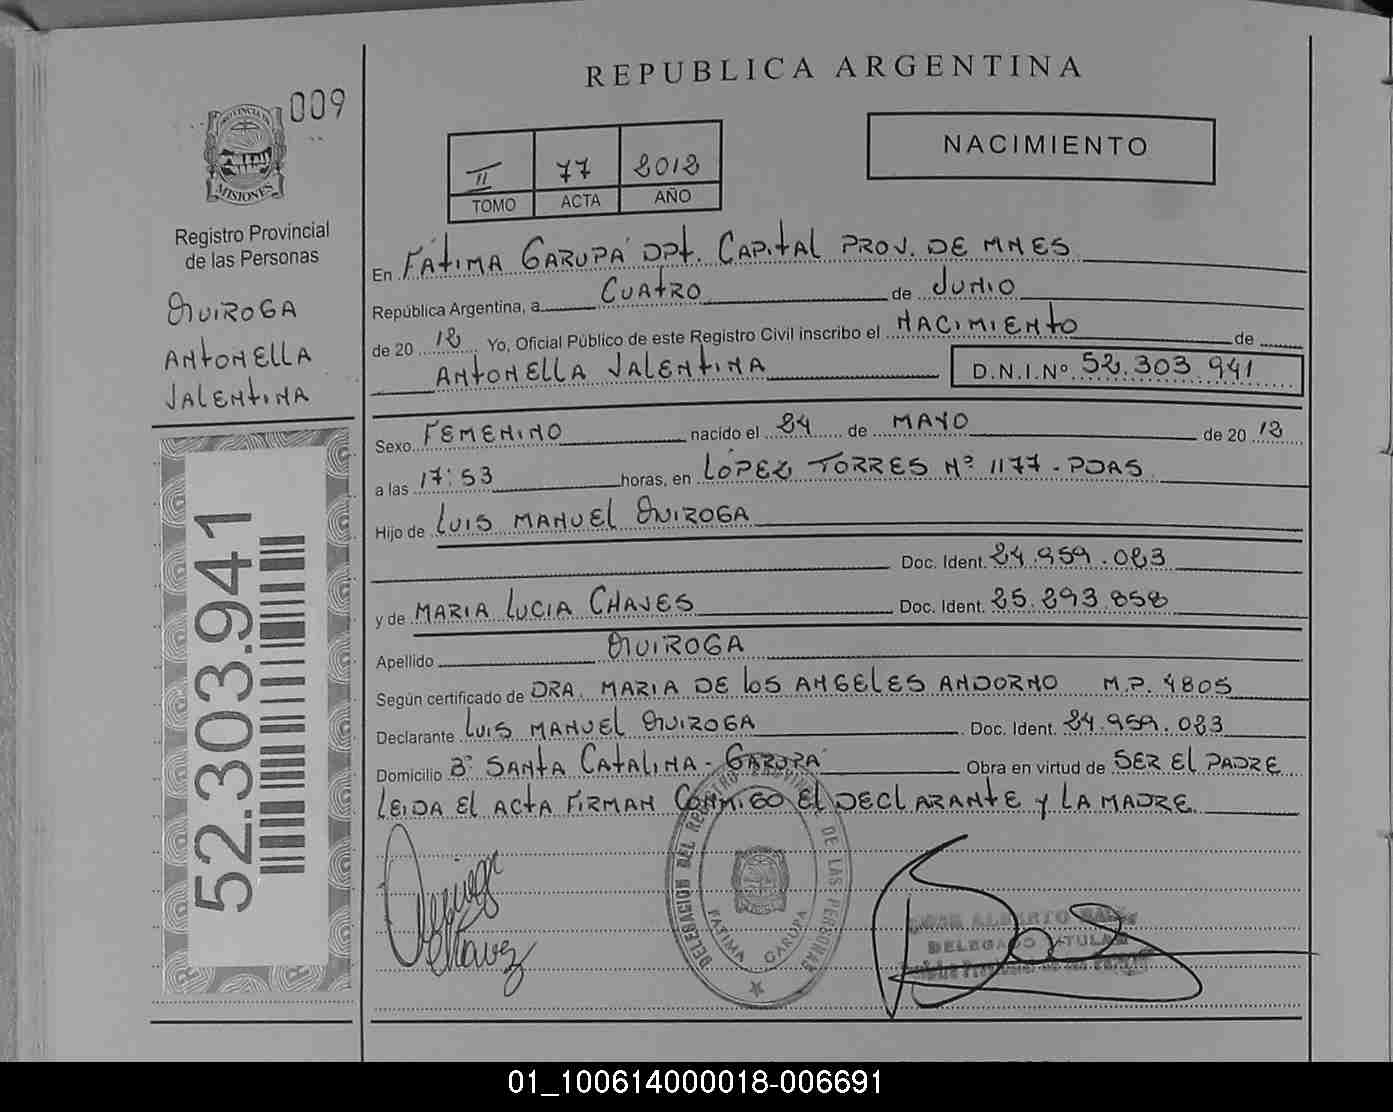 REPUBLICA ARGENTINA
009
PROVINCIA DE
MISIONES
Registro Provincial
de las Personas
QUIROGA
ANTONELLA
VALENTINA
52.303.941
II 77 2012
TOMO ACTA AÑO
NACIMIENTO
En FÁTIMA GARUPÁ DPT. CAPITAL PROV. DE MNES
República Argentina, a CUATRO de JUNIO
de 20 12 Yo, Oficial Público de este Registro Civil inscribo el NACIMIENTO de
ANTONELLA VALENTINA D.N.I.Nº 52.303.941
Sexo FEMENINO nacido el 24 de MAYO de 20 12
a las 17:53 horas, en LÓPEZ TORRES Nº 1177 - PDAS
Hijo de LUIS MANUEL QUIROGA
Doc. Ident. 24.959.023
y de MARIA LUCIA CHAVES Doc. Ident. 25.293.858
Apellido QUIROGA
Según certificado de DRA. MARIA DE LOS ANGELES ANDORNO M.P. 4805
Declarante LUIS MANUEL QUIROGA Doc. Ident. 24.959.023
Domicilio Bº SANTA CATALINA - GARUPÁ Obra en virtud de SER EL PADRE
LEIDA EL ACTA FIRMAN CONMIGO EL DECLARANTE Y LA MADRE.
DELEGACION DEL REGISTRO PROVINCIAL DE LAS PERSONAS
FATIMA GARUPA
Chavez
ALBERTO
DELEGADO TITULAR
01_100614000018-006691